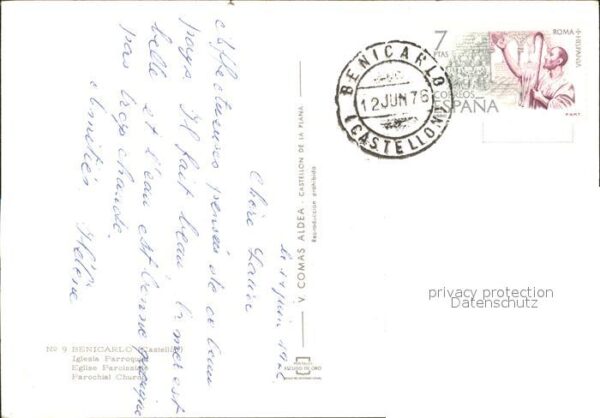 le 11 juin 1976
Chère
Affectueuses pensées de ce beau
pays. Il fait beau, la mer est
belle et l'eau est bonne
pas trop chaude.
Amitiés. Hélène
Nº 9 BENICARLO (Castellón)
Iglesia Parroquial
Eglise Paroissiale
Parochial Church
V. COMAS ALDEA - CASTELLON DE LA PLANA
Reproducción prohibida
BENICARLO
12 JUN 76
(CASTELLON)
7
PTAS
CORREOS
ESPAÑA
ROMA
HISPANIA
privacy protection
Datenschutz